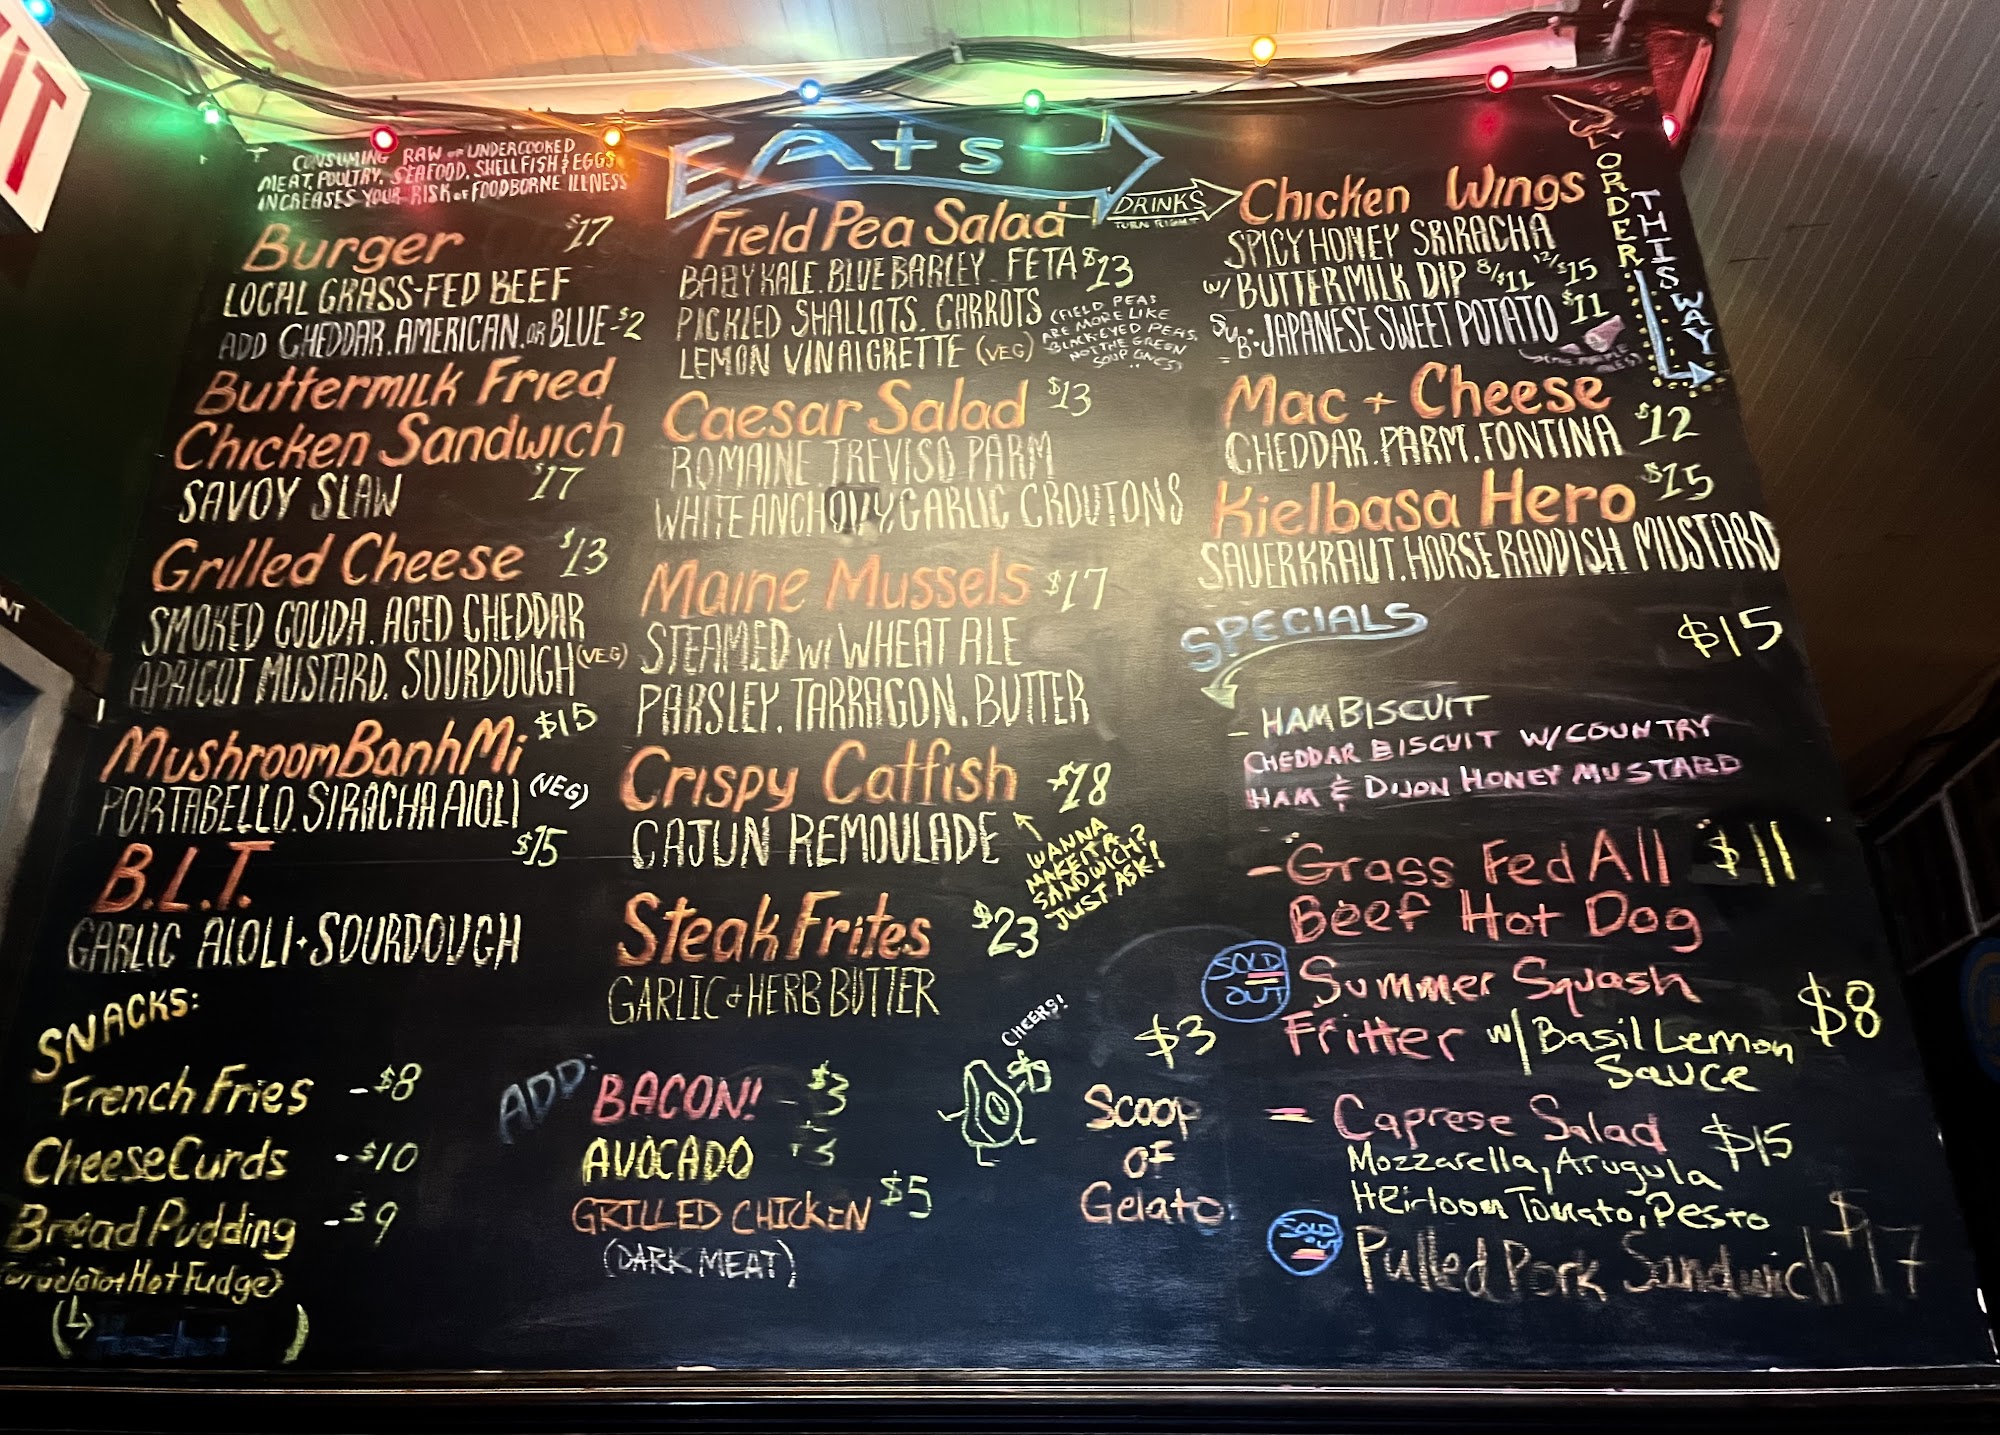 CONSUMING RAW OR UNDERCOOKED
MEAT, POULTRY, SEAFOOD, SHELLFISH & EGGS
INCREASES YOUR RISK OF FOODBORNE ILLNESS
Burger $17
LOCAL GRASS-FED BEEF
ADD CHEDDAR. AMERICAN. OR BLUE-$2
Buttermilk Fried
Chicken Sandwich
SAVOY SLAW $17
Grilled Cheese $13
SMOKED GOUDA. AGED CHEDDAR
APRICOT MUSTARD. SOURDOUGH (VEG)
Mushroom Banh Mi $15
PORTABELLO. SIRACHA AIOLI (VEG)
B.L.T. $15
GARLIC AIOLI · SOURDOUGH
SNACKS:
French Fries - $8
Cheese Curds - $10
Bread Pudding - $9
(w/ Gelato + Hot Fudge)
EAts
DRINKS
TURN RIGHT
Field Pea Salad
BABY KALE. BLUE BARLEY. FETA $13
PICKLED SHALLOTS. CARROTS
LEMON VINAIGRETTE (VEG)
(FIELD PEAS
ARE MORE LIKE
BLACK-EYED PEAS,
NOT THE GREEN
SOUP ONES)
Caesar Salad $13
ROMAINE. TREVISO PARM
WHITE ANCHOVY, GARLIC CROUTONS
Maine Mussels $17
STEAMED w/ WHEAT ALE
PARSLEY. TARRAGON. BUTTER
Crispy Catfish $18
CAJUN REMOULADE
WANNA
MAKE IT A
SANDWICH?
JUST ASK!
Steak Frites $23
GARLIC + HERB BUTTER
ADD:
BACON! - $3
AVOCADO
GRILLED CHICKEN $5
(DARK MEAT)
CHEERS!
$3
Scoop
OF
Gelato
Chicken Wings
SPICY HONEY SRIRACHA
w/ BUTTERMILK DIP 8/$11 12/$15
SUB: JAPANESE SWEET POTATO $11
ORDER
THIS WAY
Mac + Cheese $12
CHEDDAR. PARM. FONTINA
Kielbasa Hero $15
SAUERKRAUT. HORSERADDISH MUSTARD
SPECIALS
$15
- HAM BISCUIT
CHEDDAR BISCUIT W/ COUNTRY
HAM & DIJON HONEY MUSTARD
- Grass Fed All $11
Beef Hot Dog
SOLD OUT
Summer Squash
Fritter w/ Basil Lemon $8
Sauce
- Caprese Salad $15
Mozzarella, Arugula
Heirloom Tomato, Pesto
SOLD OUT
Pulled Pork Sandwich $17